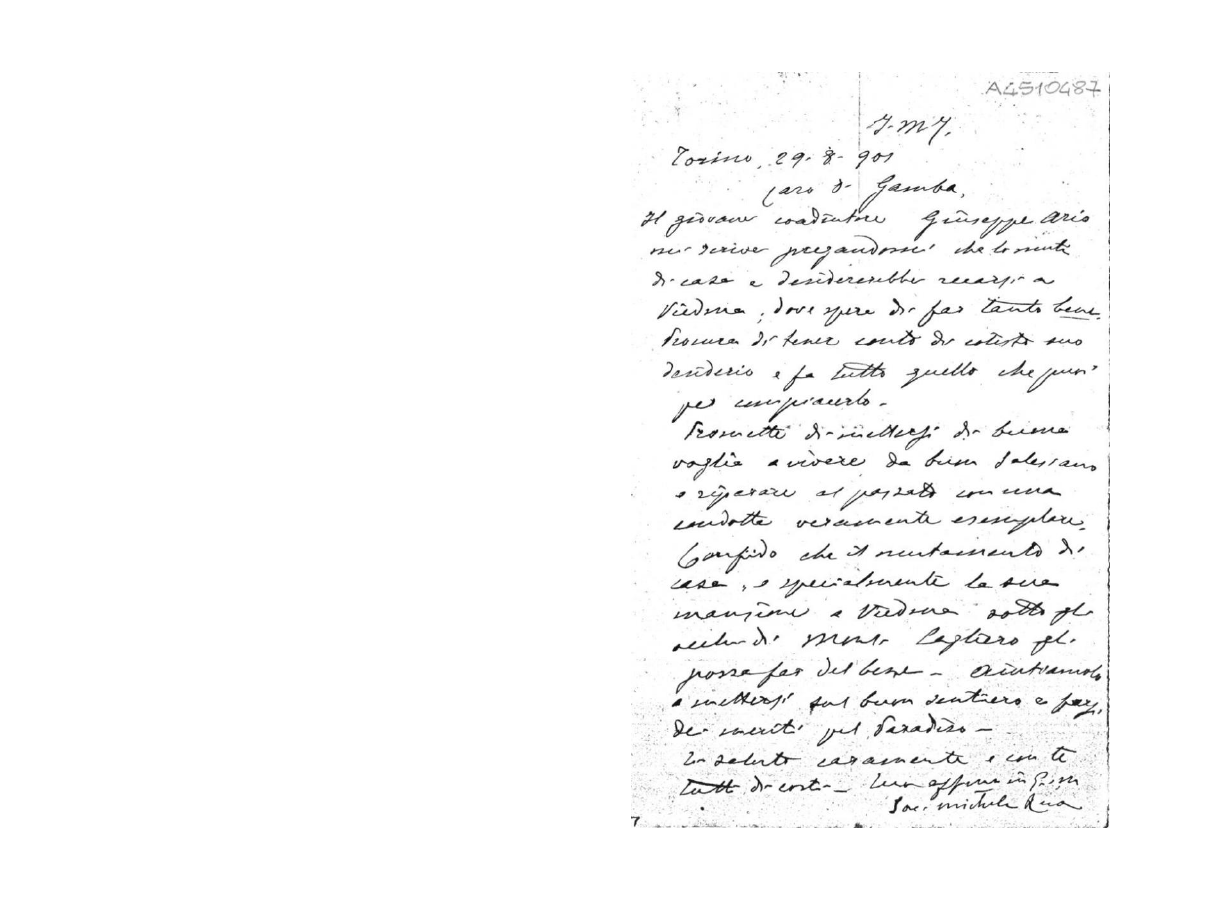 A4510487
J. M. J.
Torino, 29-8-901
Caro D. Gamba,
Il giovane coadiutore Giuseppe Ario
mi scrive pregandomi che lo muti
di casa e desidererebbe recarsi a
Viedma, dove spera di far tanto bene.
Procura di tener conto di cotesto suo
desiderio e fa tutto quello che puoi
per compiacerlo.
Promette di mettersi di buona
voglia a vivere da buon Salesiano
e riparare al passato con una
condotta veramente esemplare.
Confido che il mutamento di
casa, e specialmente la sua
mansione a Viedma sotto gli
occhi di Mons. Cagliero gli
possa far del bene - Aiutiamolo
a mettersi sul buon sentiero e farsi
dei meriti pel Paradiso -
Ti saluto caramente e con te
tutti di costì - Tuo affmo in G. e M.
Sac. Michele Rua
7